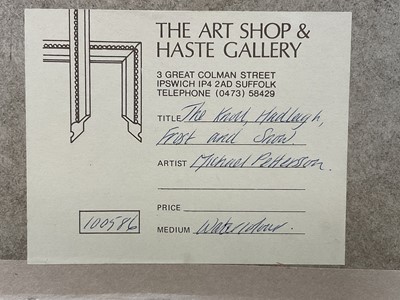 THE ART SHOP &
HASTE GALLERY
3 GREAT COLMAN STREET
IPSWICH IP4 2AD SUFFOLK
TELEPHONE (0473) 58429
TITLE The Knoll, Hadleigh,
Frost and Snow.
ARTIST Michael Patterson.
PRICE
100586
MEDIUM Watercolour.